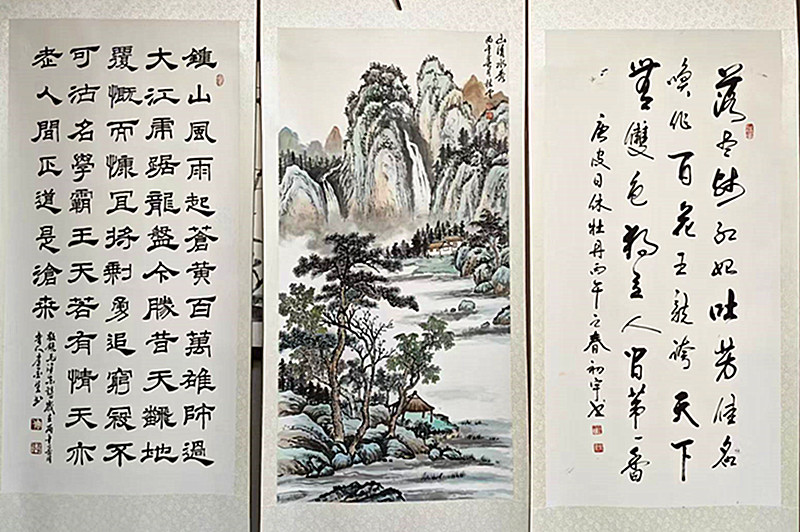 落盡殘紅始吐芳佳名
喚作百花王競誇天下
無雙色獨立人間第一香
唐皮日休牡丹丙午之春初宇書
山清水秀
鍾山風雨起蒼黃百萬雄師過
大江虎踞龍盤今勝昔天翻地
覆慨而慷宜將剩勇追窮寇不
可沽名學霸王天若有情天亦
老人間正道是滄桑